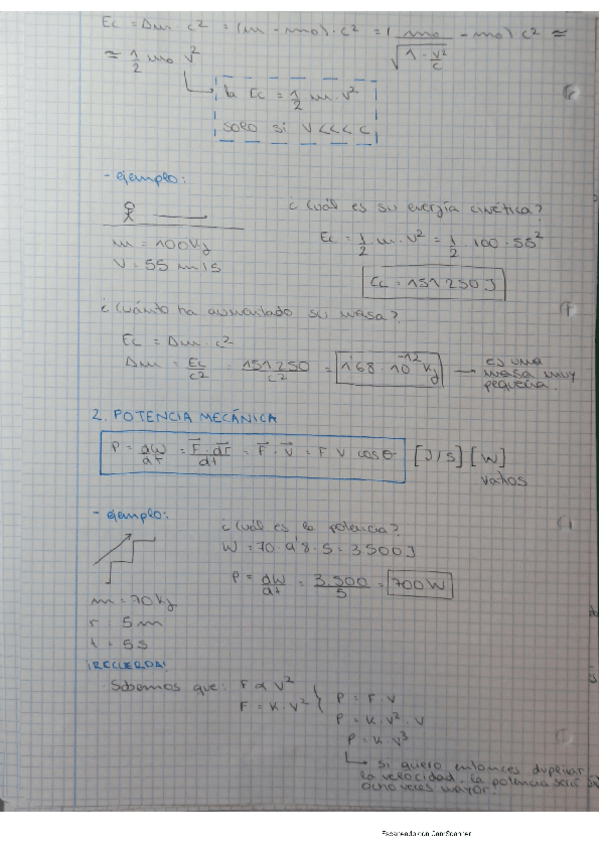 Ec = Δm · c² = (m - m₀) · c² = ( m₀ / √(1 - v²/c) - m₀) c² ≈
≈ 1/2 m₀ v²
la Ec = 1/2 m · v²
solo si v <<< c
- ejemplo:
¿Cuál es su energía cinética?
m = 100 kg
v = 55 m/s
Ec = 1/2 · m · v² = 1/2 · 100 · 55²
Ec = 151250 J
¿Cuánto ha aumentado su masa?
Ec = Δm · c²
Δm = Ec/c² = 151250/c² = 1'68 · 10⁻¹² kg → es una
masa muy
pequeña.
2. POTENCIA MECÁNICA
P = dW/dt = F⃗ · dr⃗/dt = F⃗ · v⃗ = F V cosθ [J/s] [W]
vatios
- ejemplo:
¿Cuál es la potencia?
W = 70 · 9'8 · 5 = 3500 J
P = dW/dt = 3.500/5 = 700 W
m = 70 kg
r = 5 m
t = 5 s
¡RECUERDA!
Sabemos que: F ∝ v²
F = K · v²
P = F · V
P = K · v² · v
P = K · v³
Si quiero entonces duplicar
la velocidad, la potencia será
ocho veces mayor.
Escaneado con CamScanner